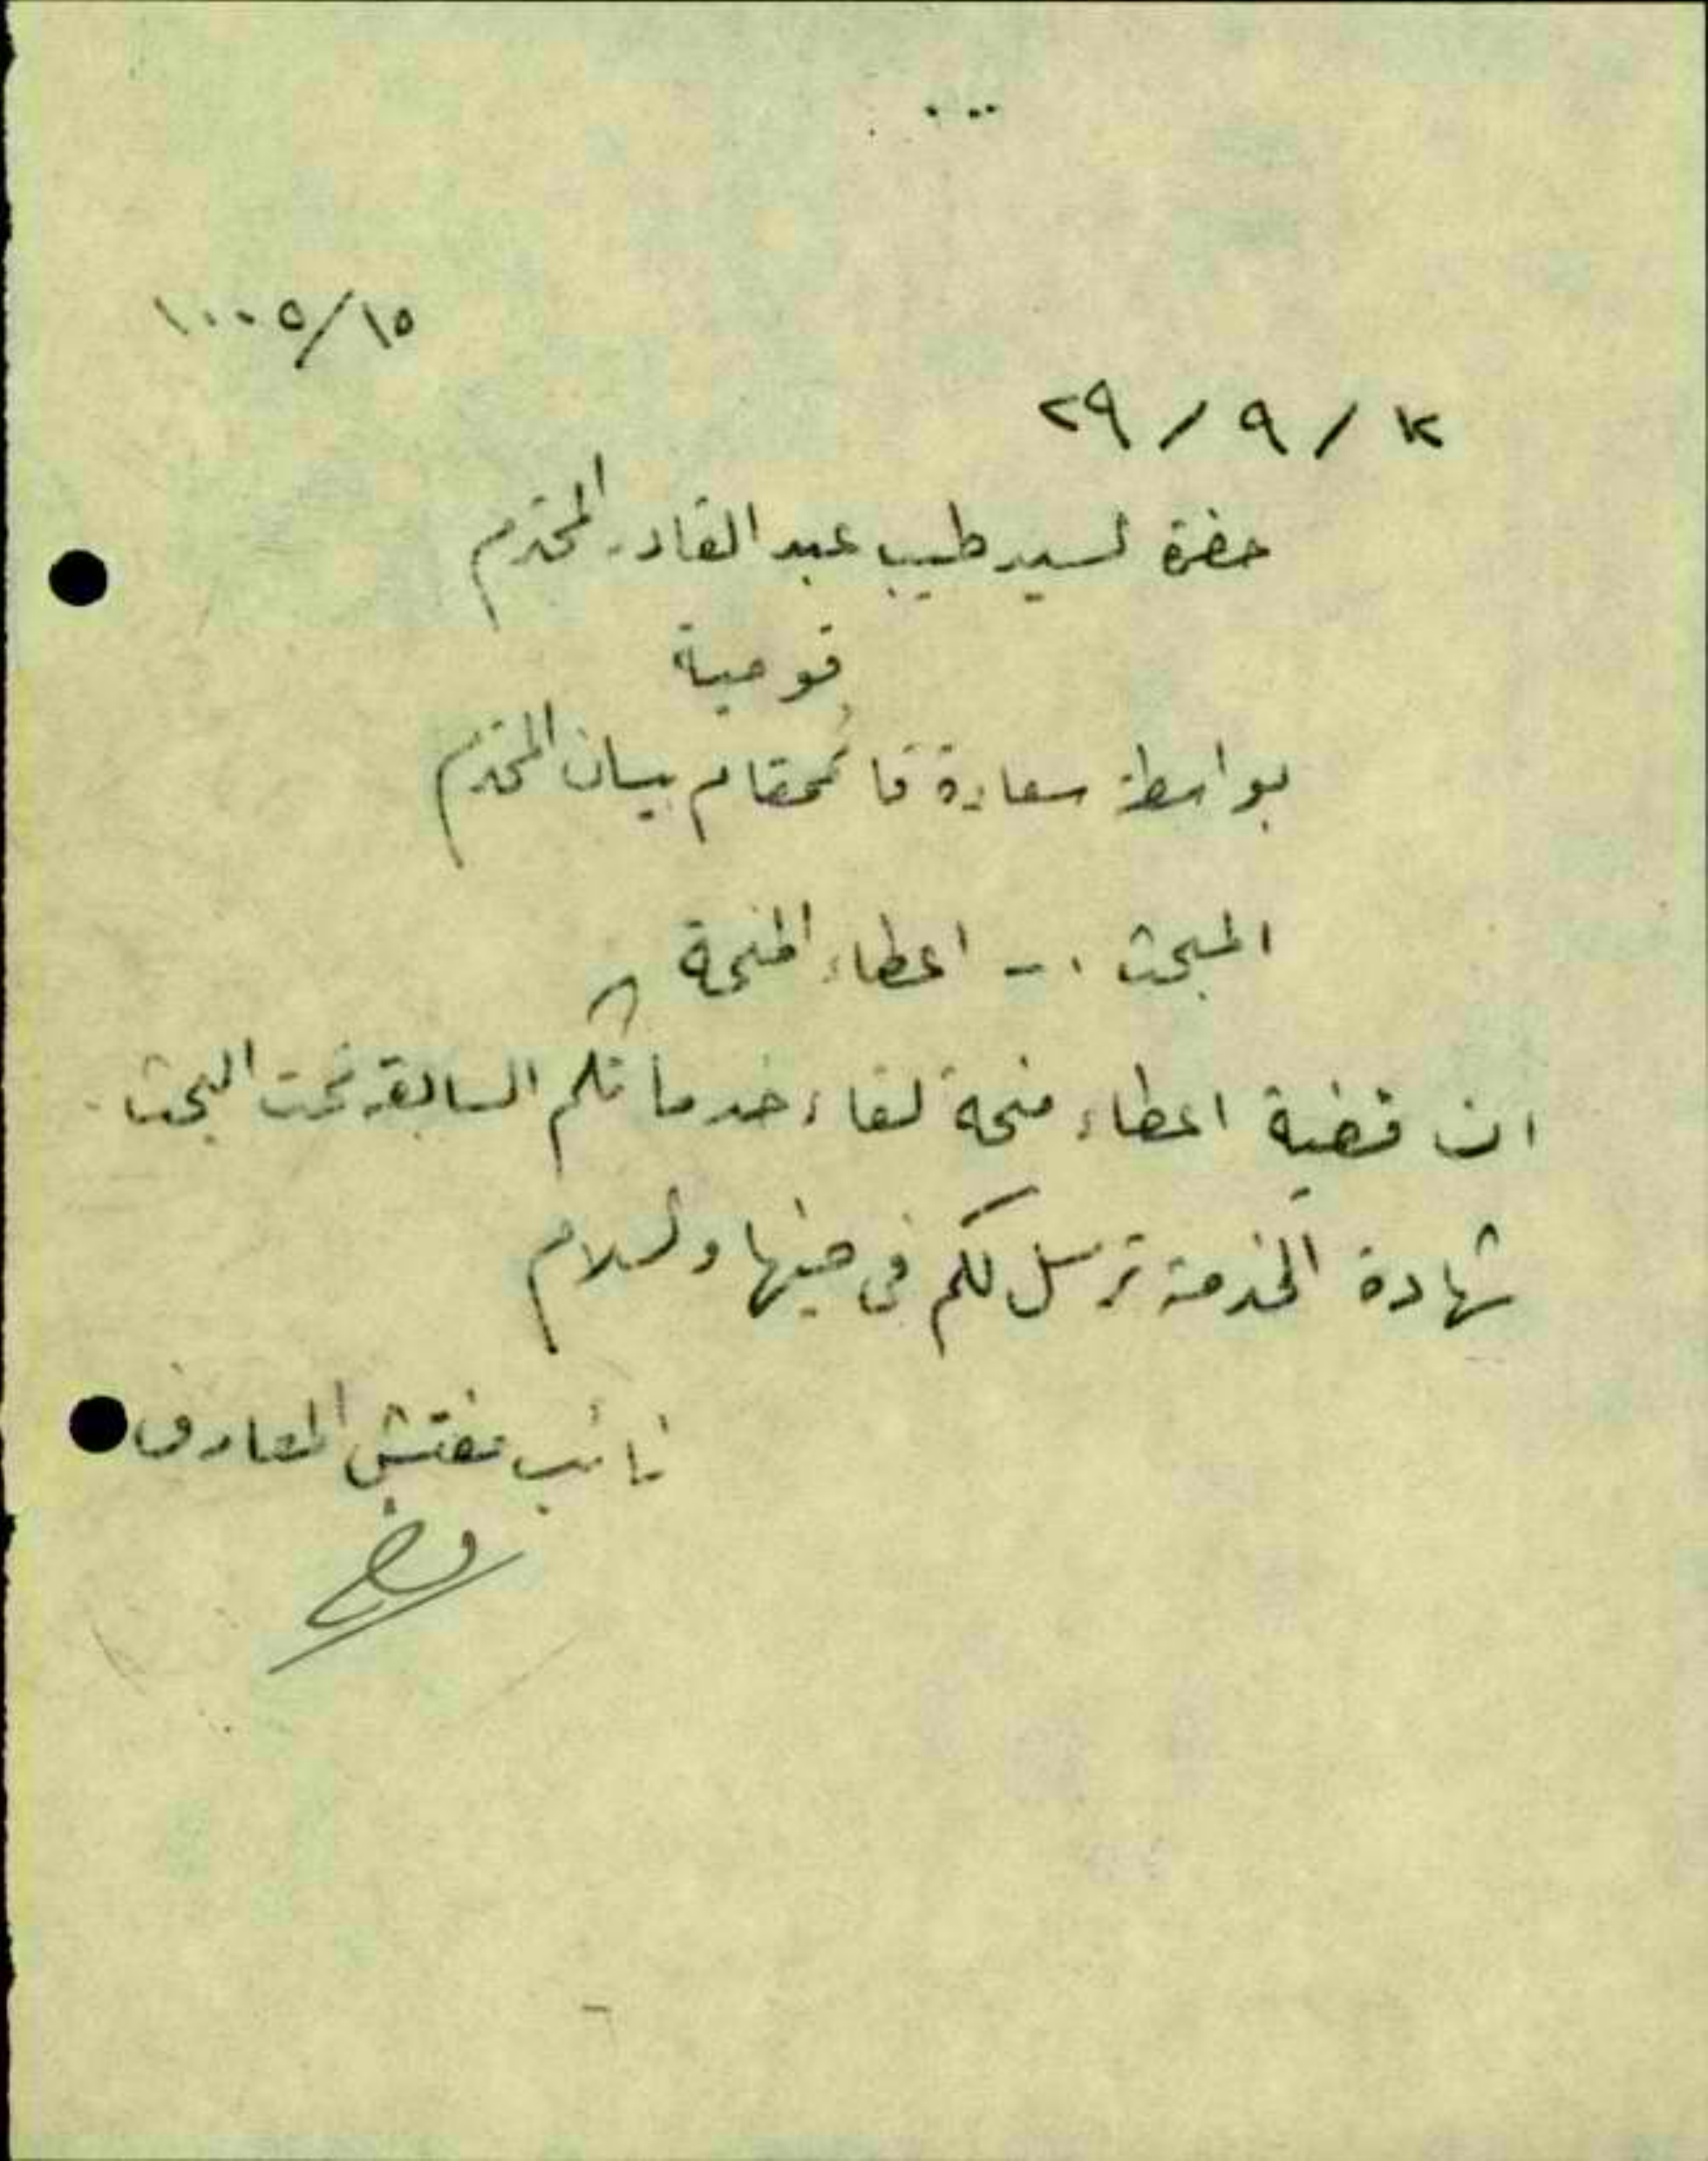 ١٠٠٥/١٥
١٢ / ٩ / ٢٩
حضرة السيد طيب عبد القادر المحترم
قومية
بواسطة سعادة قائمقام بيسان المحترم
المبحث :- اعطاء المنحة
ان قضية اعطاء منحة لقاء خدماتكم السابقة تحت البحث .
شهادة الخدمة ترسل لكم في حينها والسلام
نائب مفتش المعارف